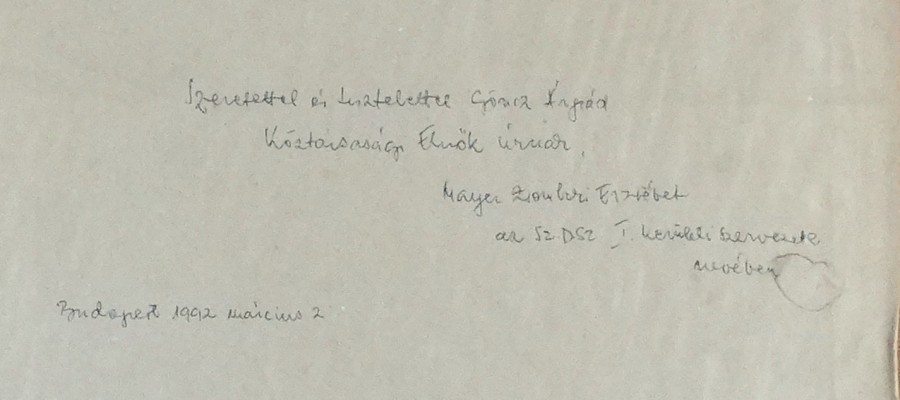 Szeretettel és tisztelettel Göncz Árpád
Köztársasági Elnök Úrnak,
Mayer Zsombori Erzsébet
az SZDSZ I. kerületi szervezete
nevében
Budapest 1992 március 2